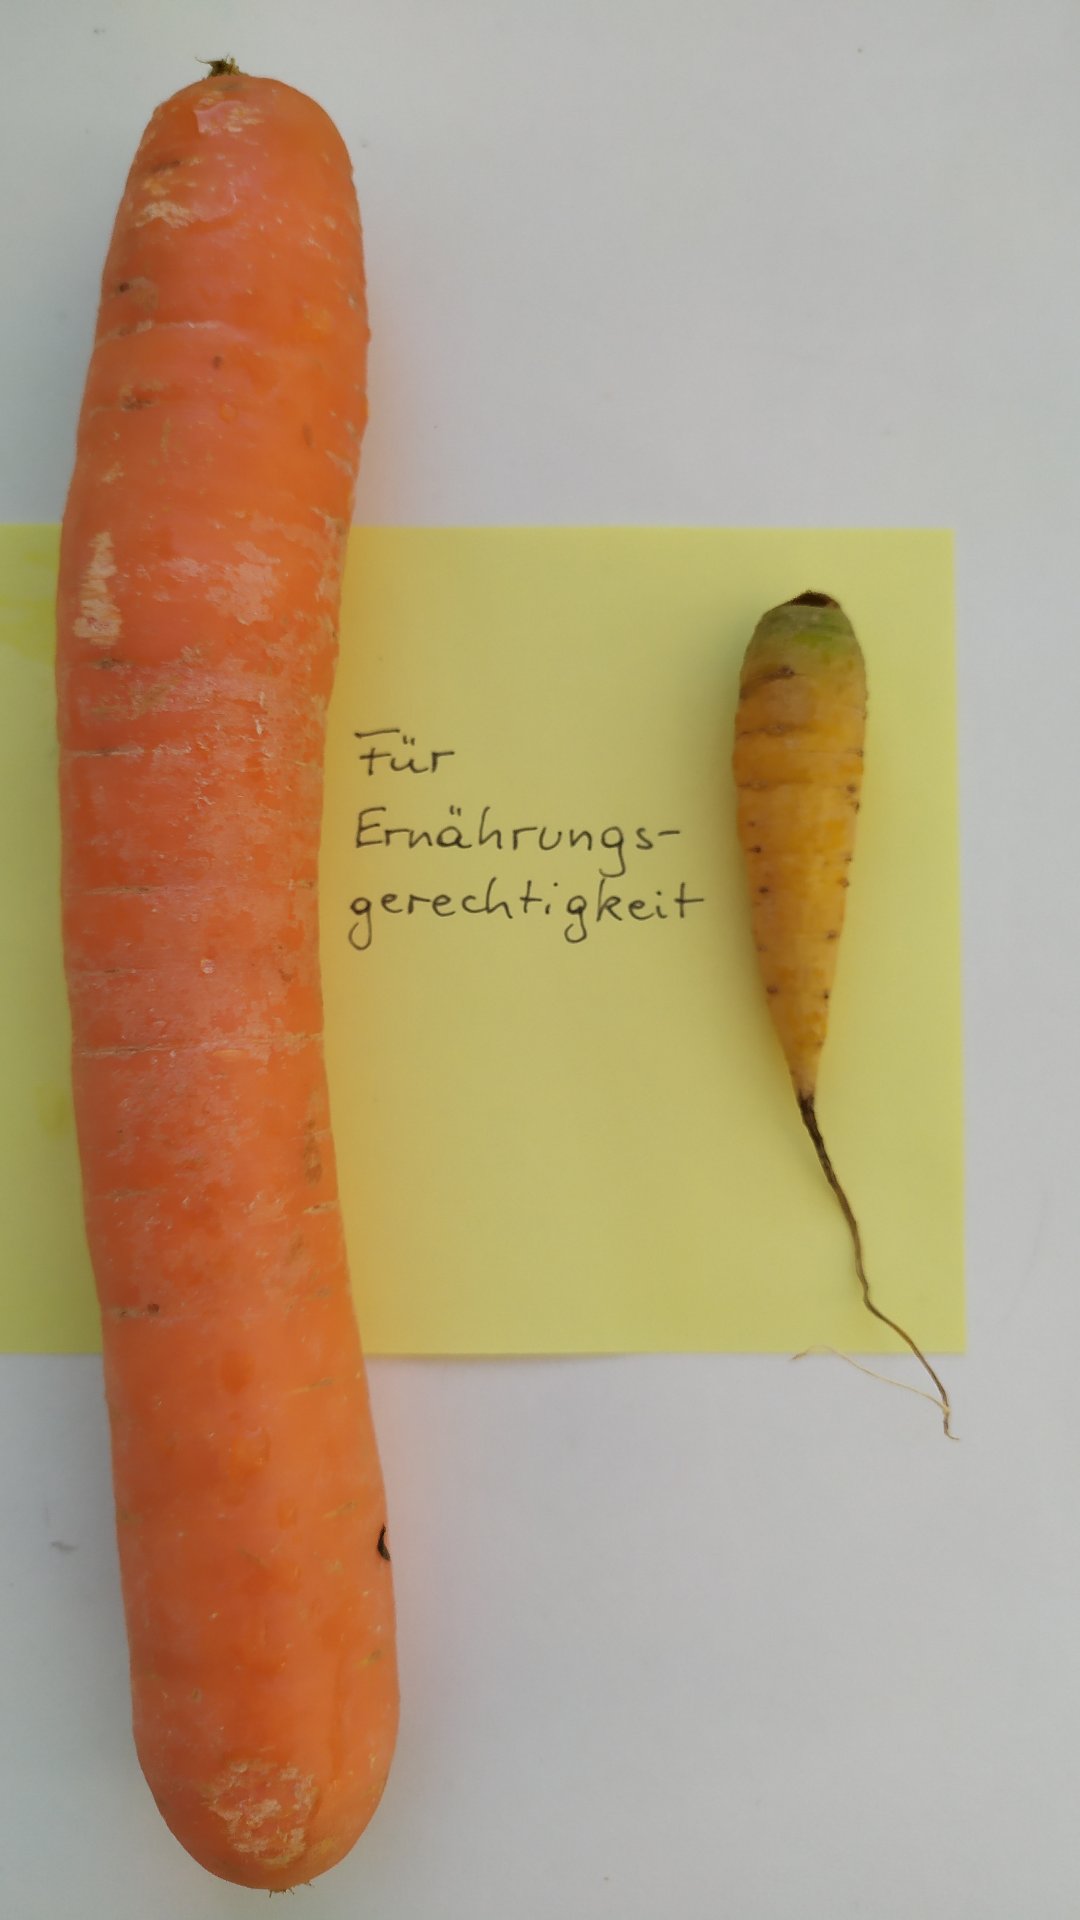 Für
Ernährungs-
gerechtigkeit